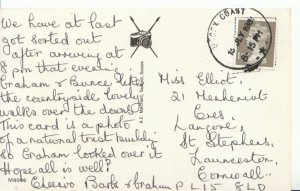 We have at last
got sorted out
after arriving at
8 pm that evening.
Graham & Bunce likes
the countryside lovely
walks over the downs
This card is a photo
of a national trust build'g
so Graham looked over it
Hope all is well!
Cheerio Barbs & Graham
M8098
COAST
Miss Elliot,
21 Menheriot
Cres
Langore,
St Stephens,
Launceston,
Cornwall
PL15 8LD